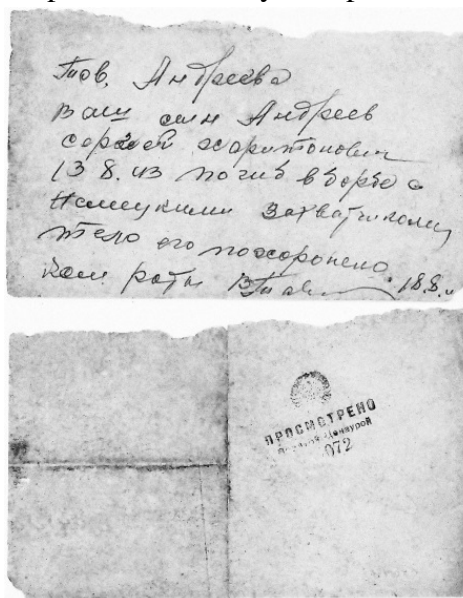 Тов. Андреева
Ваш сын Андреев
Сергей Харитонович
13 8.43 погиб в борьбе с
Немецкими Захватчиками
тело его похоронено.
Ком роты 18.8.
ПРОСМОТРЕНО
Военной Цензурой
072